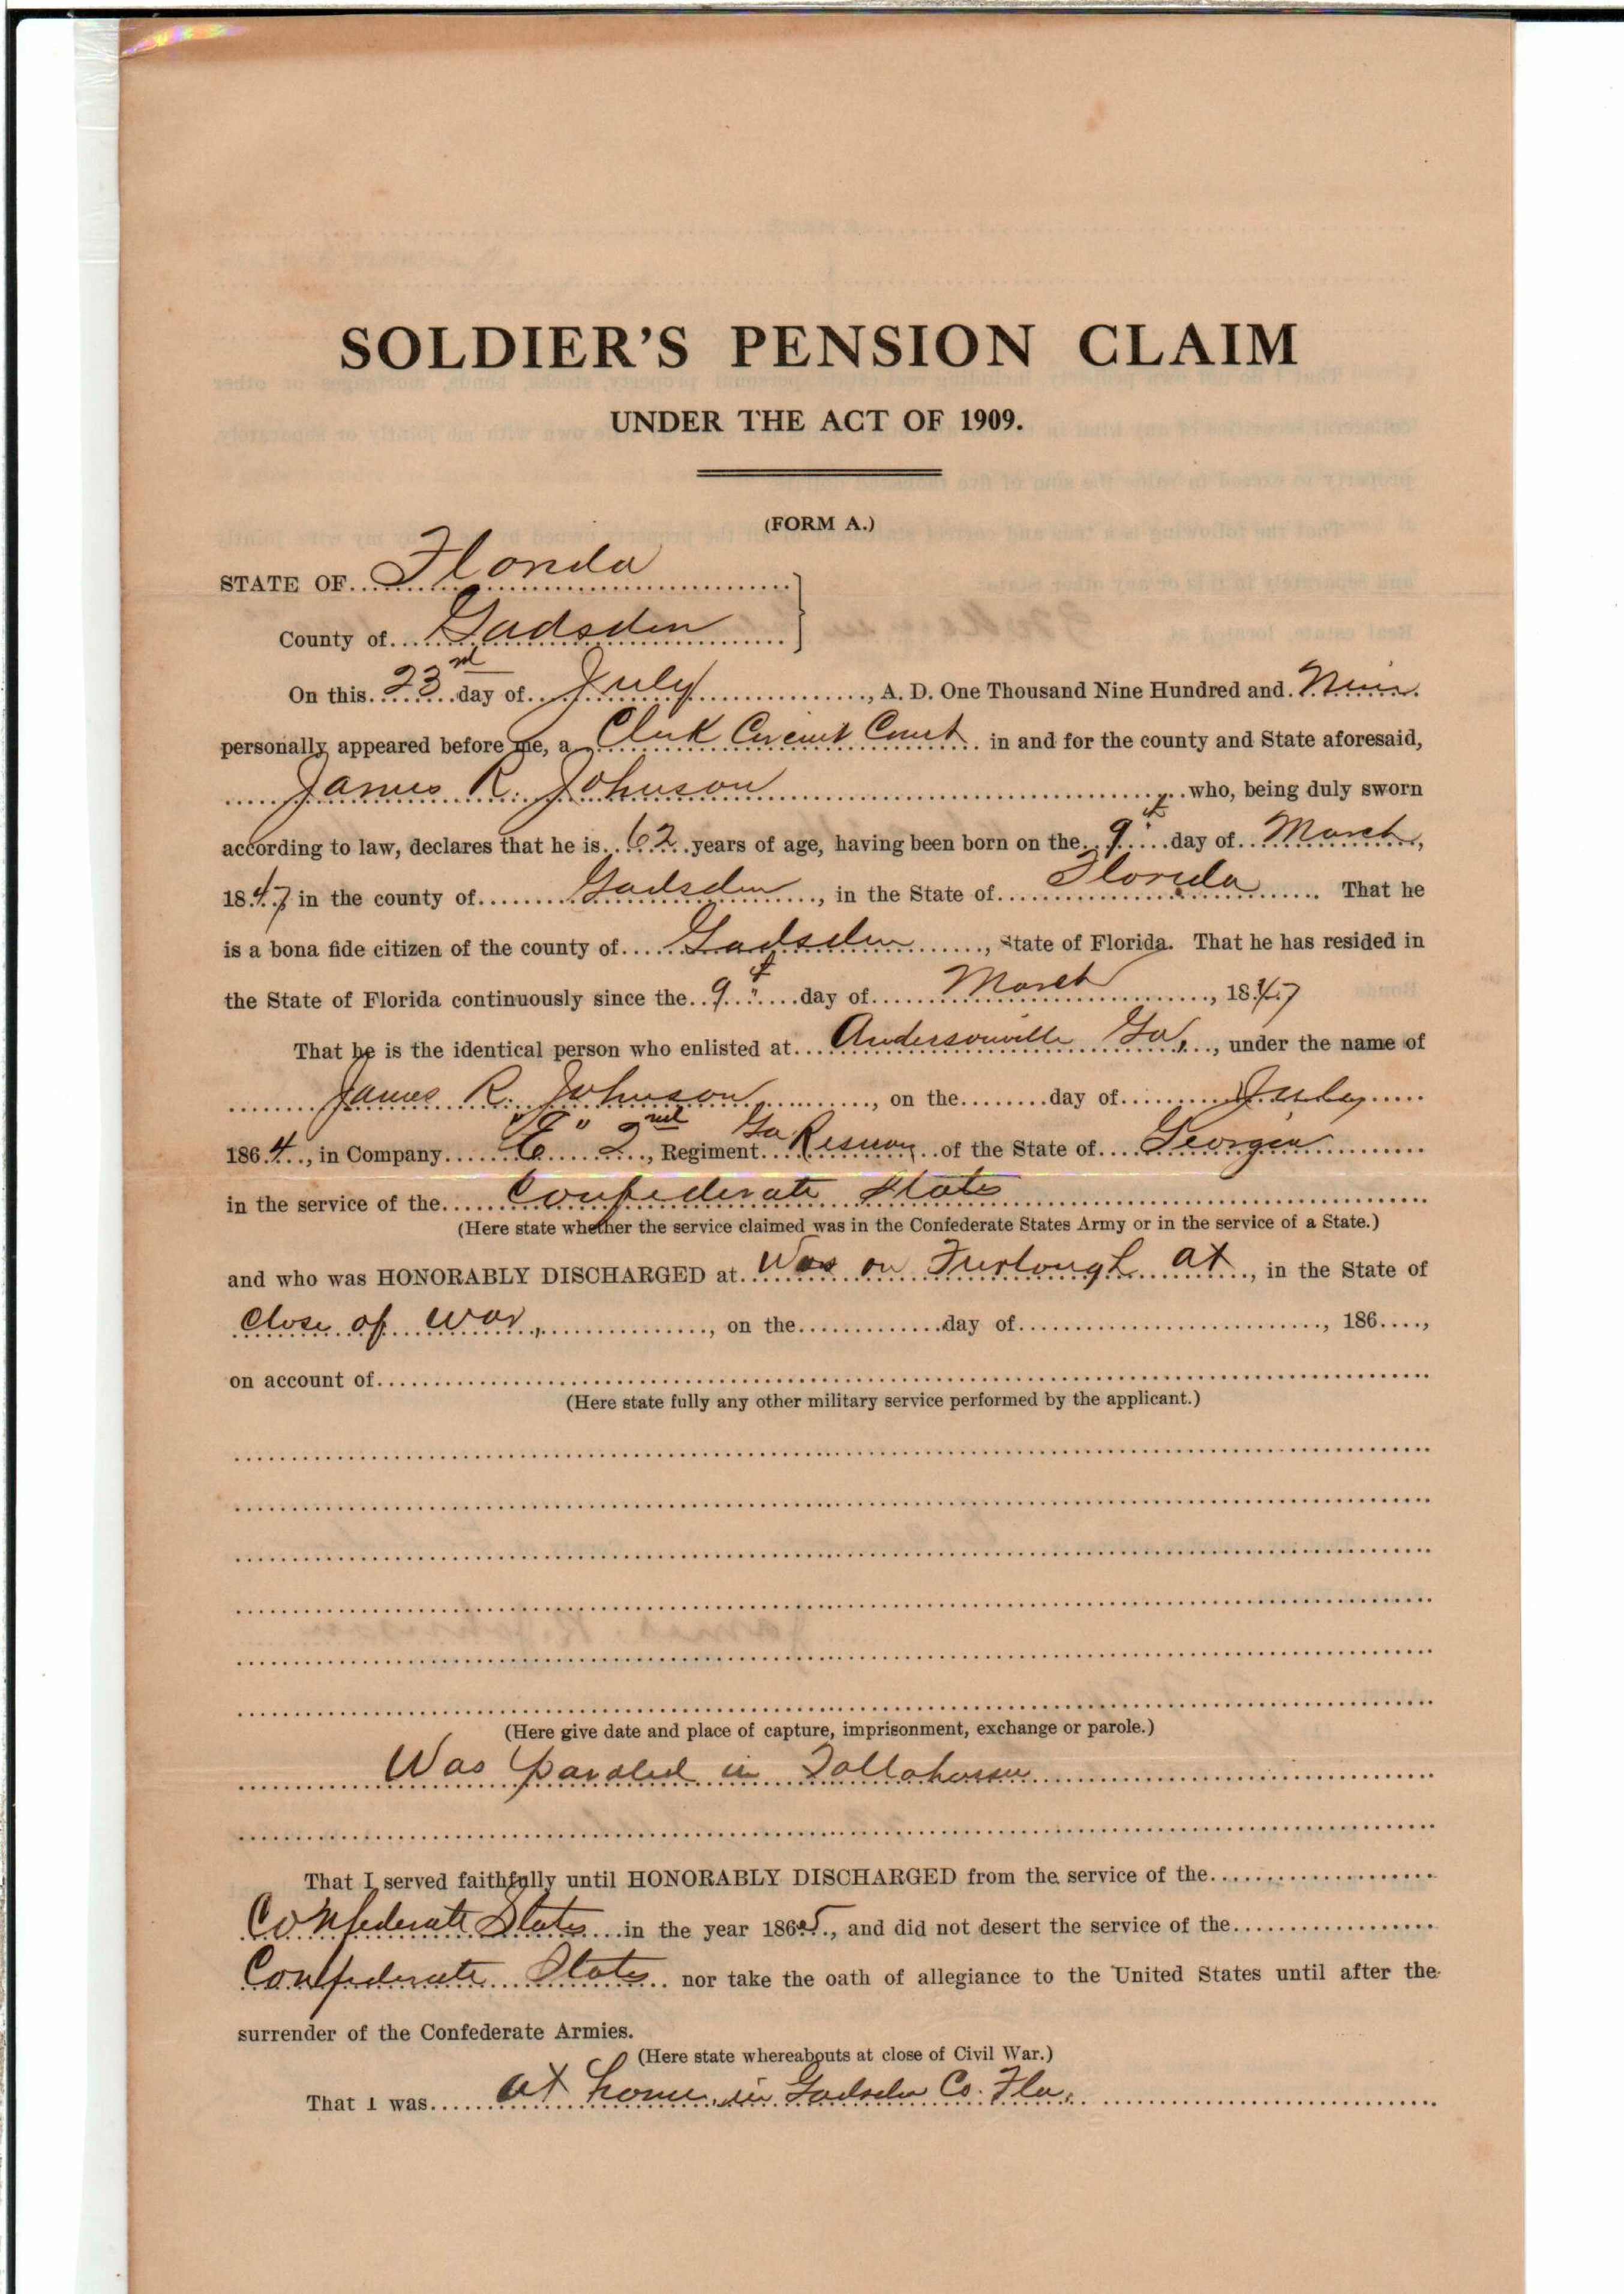 SOLDIER'S PENSION CLAIM
UNDER THE ACT OF 1909.
(FORM A.)
STATE OF Florida
County of Gadsden
On this 23rd day of July, A. D. One Thousand Nine Hundred and Nine
personally appeared before me, a Clerk Circuit Court in and for the county and State aforesaid,
James R. Johnson, who, being duly sworn
according to law, declares that he is 62 years of age, having been born on the 9th day of March,
1847 in the county of Gadsden, in the State of Florida. That he
is a bona fide citizen of the county of Gadsden, State of Florida. That he has resided in
the State of Florida continuously since the 9th day of March, 1847
That he is the identical person who enlisted at Andersonville Ga., under the name of
James R. Johnson, on the day of July
1864, in Company "E" 2nd, Regiment Ga Reserves of the State of Georgia
in the service of the Confederate States
(Here state whether the service claimed was in the Confederate States Army or in the service of a State.)
and who was HONORABLY DISCHARGED at Was on Furlough at, in the State of
close of war, on the day of, 186,
on account of
(Here state fully any other military service performed by the applicant.)
(Here give date and place of capture, imprisonment, exchange or parole.)
Was paroled in Tallahassee
That I served faithfully until HONORABLY DISCHARGED from the service of the
Confederate States in the year 1865, and did not desert the service of the
Confederate States nor take the oath of allegiance to the United States until after the
surrender of the Confederate Armies.
(Here state whereabouts at close of Civil War.)
That I was at home in Gadsden Co. Fla.